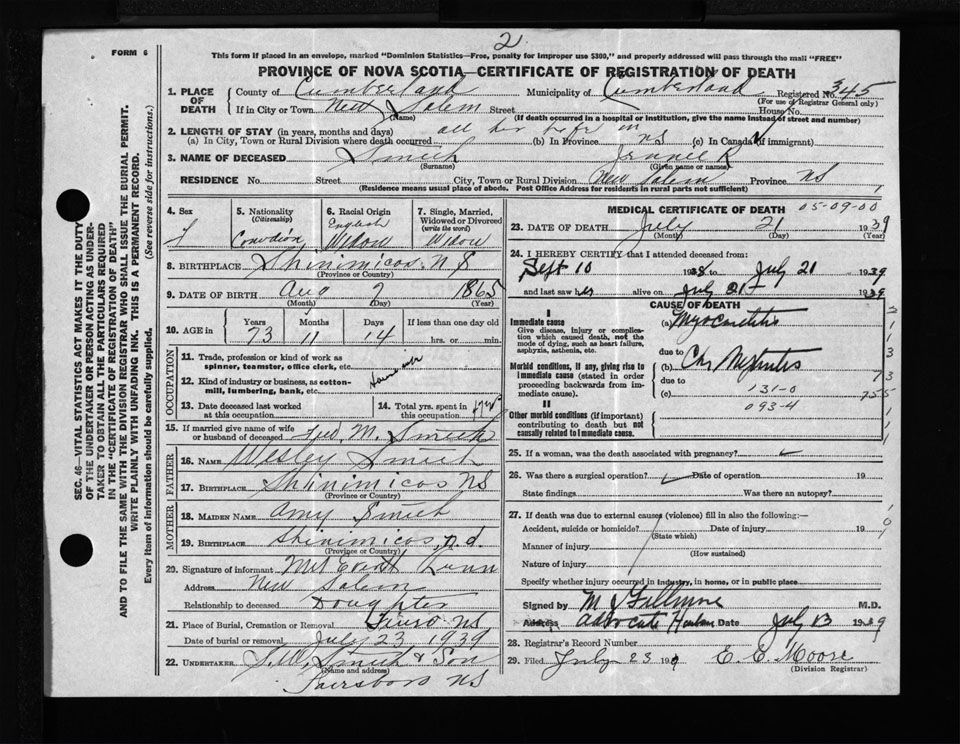 2
FORM 6
This form if placed in an envelope, marked "Dominion Statistics—Free, penalty for improper use $300," and properly addressed will pass through the mail "FREE"
PROVINCE OF NOVA SCOTIA—CERTIFICATE OF REGISTRATION OF DEATH
1. PLACE OF DEATH County of Cumberland Municipality of Cumberland Registered No. 345
(For use of Registrar General only)
If in City or Town New Salem Street House No.
(Name) (If death occurred in a hospital or institution, give the name instead of street and number)
2. LENGTH OF STAY (in years, months and days) all her life in
(a) In City, Town or Rural Division where death occurred (b) In Province NS (c) In Canada (if immigrant)
3. NAME OF DECEASED Smith Jennie R
(Surname) (Given name or names)
RESIDENCE No. Street City, Town or Rural Division New Salem Province NS
(Residence means usual place of abode. Post Office Address for residents in rural parts not sufficient)
SEC. 46—VITAL STATISTICS ACT MAKES IT THE DUTY
OF THE UNDERTAKER OR PERSON ACTING AS UNDER-
TAKER TO OBTAIN ALL THE PARTICULARS REQUIRED
IN THE "CERTIFICATE OF REGISTRATION OF DEATH"
AND TO FILE THE SAME WITH THE DIVISION REGISTRAR WHO SHALL ISSUE THE BURIAL PERMIT.
WRITE PLAINLY WITH UNFADING INK. THIS IS A PERMANENT RECORD.
Every item of information should be carefully supplied. (See reverse side for instructions.)
4. Sex
5. Nationality (Citizenship) Canadian
6. Racial Origin English Widow
7. Single, Married, Widowed or Divorced (write the word) Widow
8. BIRTHPLACE Shinimicas N S
(Province or Country)
9. DATE OF BIRTH Aug 7 1865
(Month) (Day) (Year)
10. AGE in Years Months Days If less than one day old
73 11 14 hrs. or min.
OCCUPATION
11. Trade, profession or kind of work as spinner, teamster, office clerk, etc.
12. Kind of industry or business, as cotton-mill, lumbering, bank, etc.
13. Date deceased last worked at this occupation
14. Total yrs. spent in this occupation
15. If married give name of wife or husband of deceased M. Smith
FATHER
16. NAME Wesley Smith
17. BIRTHPLACE Shinimicas NS
(Province or Country)
MOTHER
18. MAIDEN NAME Amy Smith
19. BIRTHPLACE Shinimicas, n.s.
(Province or Country)
20. Signature of informant Mrs
Address New Salem
Relationship to deceased Daughter
21. Place of Burial, Cremation or Removal Truro NS
Date of burial or removal July 23 1939
22. UNDERTAKER Smith & Son
(Name and address)
Parrsboro NS
MEDICAL CERTIFICATE OF DEATH 05-09-00
23. DATE OF DEATH July 21 1939
(Month) (Day) (Year)
24. I HEREBY CERTIFY that I attended deceased from:
Sept 10 1938 to July 21 1939
and last saw her alive on July 21 1939
CAUSE OF DEATH
I
Immediate cause (a) Myocarditis
Give disease, injury or complication which caused death, not the mode of dying, such as heart failure, asphyxia, asthenia, etc.
due to
Morbid conditions, if any, giving rise to Immediate cause (stated in order proceeding backwards from immediate cause). (b) Chr Nephritis
due to
131-0
(c)
093-4
II
Other morbid conditions (if important) contributing to death but not causally related to immediate cause.
25. If a woman, was the death associated with pregnancy?
26. Was there a surgical operation? Date of operation 19
State findings Was there an autopsy?
27. If death was due to external causes (violence) fill in also the following:—
Accident, suicide or homicide? Date of injury 19
(State which)
Manner of injury
(How sustained)
Nature of injury
Specify whether injury occurred in industry, in home, or in public place
Signed by M Fillmore M.D.
Address Advocate Harbour Date July 1939
28. Registrar's Record Number
29. Filed July 23 19 E. E. Moore
(Division Registrar)